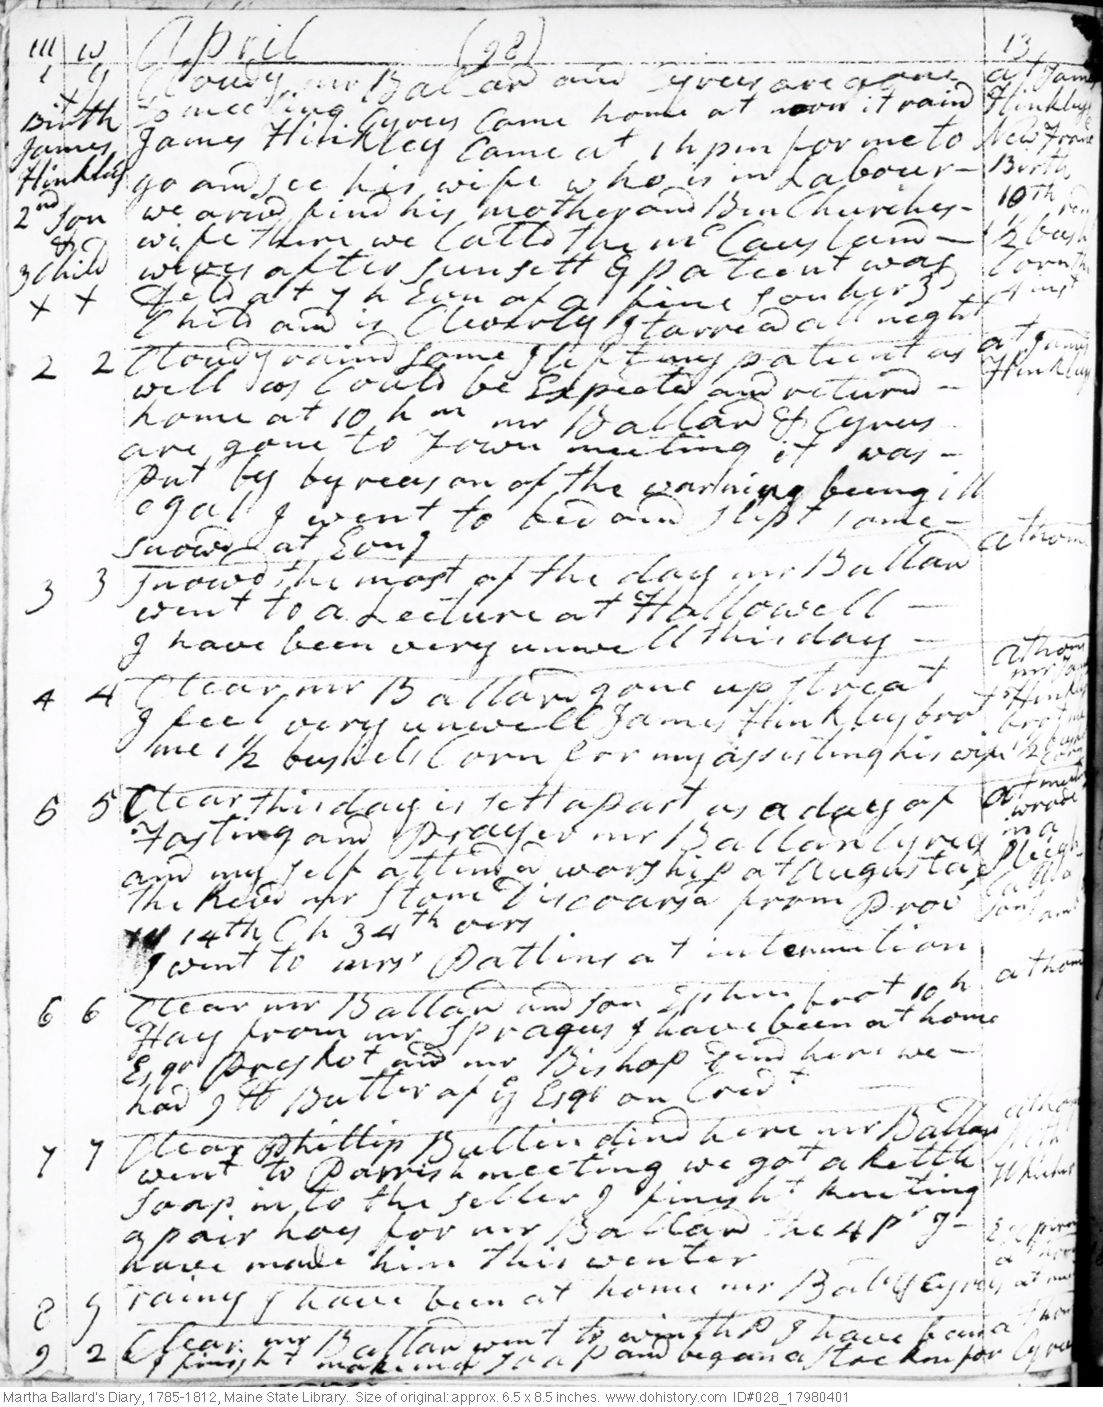 April (98) 13
1 G Cloudy. mr Ballard and Cyrus are gone at James
to meeting Cyrus Came home at noon it rain Hinkleys
Birth James Hinkley Came at 1 h pm for me to
James go and see his wife who is in Labour - Birth
Hinkley we arivd find his mother and Ben Churches - 10th
2nd Son wife there we Calld the mc Causland - ½ bush
& wives after Sunsett & patient was Corn
3 Child deld at 7 h Evn of a fine Son her 3
X X Child and is Cleverly I tarried all night
2 2 Cloudy raind Some I left my patient as at James
well as Could be Expected and returnd - Hinkleys
home at 10 h m mr Ballard & Cyrus
are gone to Town meeting it was -
Put by by reason of the warning being ill
egal I went to bed and slept some -
Snowd at Evng at home
3 3 Snowd the most of the day mr Ballard
went to a Lecture at Hallowell -
I have been very unwell this day - at home
4 4 Clear, mr Ballard gone up Streat
I feel very unwell James Hinkley brot
me 1½ bushels Corn for my assisting his wife
5 5 Clear this day is sett apart as a day of at meeting
Fasting and Prayer mr Ballard Cyrus in a
and my self attend worship at Augusta Sleigh
the Revd mr Stone Discoarsd from Prov
14th Ch 34th vers
I went to mrs Pollins at intermition
6 6 Clear mr Ballard and son Ephm brot 10 h at home
Hay from mr Spragues I have been at home
Esqr Preskot and mr Bishop dind here we -
had 9 lb Butter of ye Esqr on Cred t
7 7 Clear Phillip Bullin dind here mr Ballard at home
went to Parrish meeting we got a kettle
Soap in to the Seller I finisht kniting
a pair hoes for mr Ballard the 4 pr I -
have made him this winter
8 G rainy I have been at home mr Bald Cyrus at
9 2 Clear. mr Ballard went to winthp I have been at home
I finisht making Soap and began a Stocken for Cyrus
Martha Ballard's Diary, 1785-1812, Maine State Library. Size of original: approx. 6.5 x 8.5 inches. www.dohistory.com ID#028_17980401